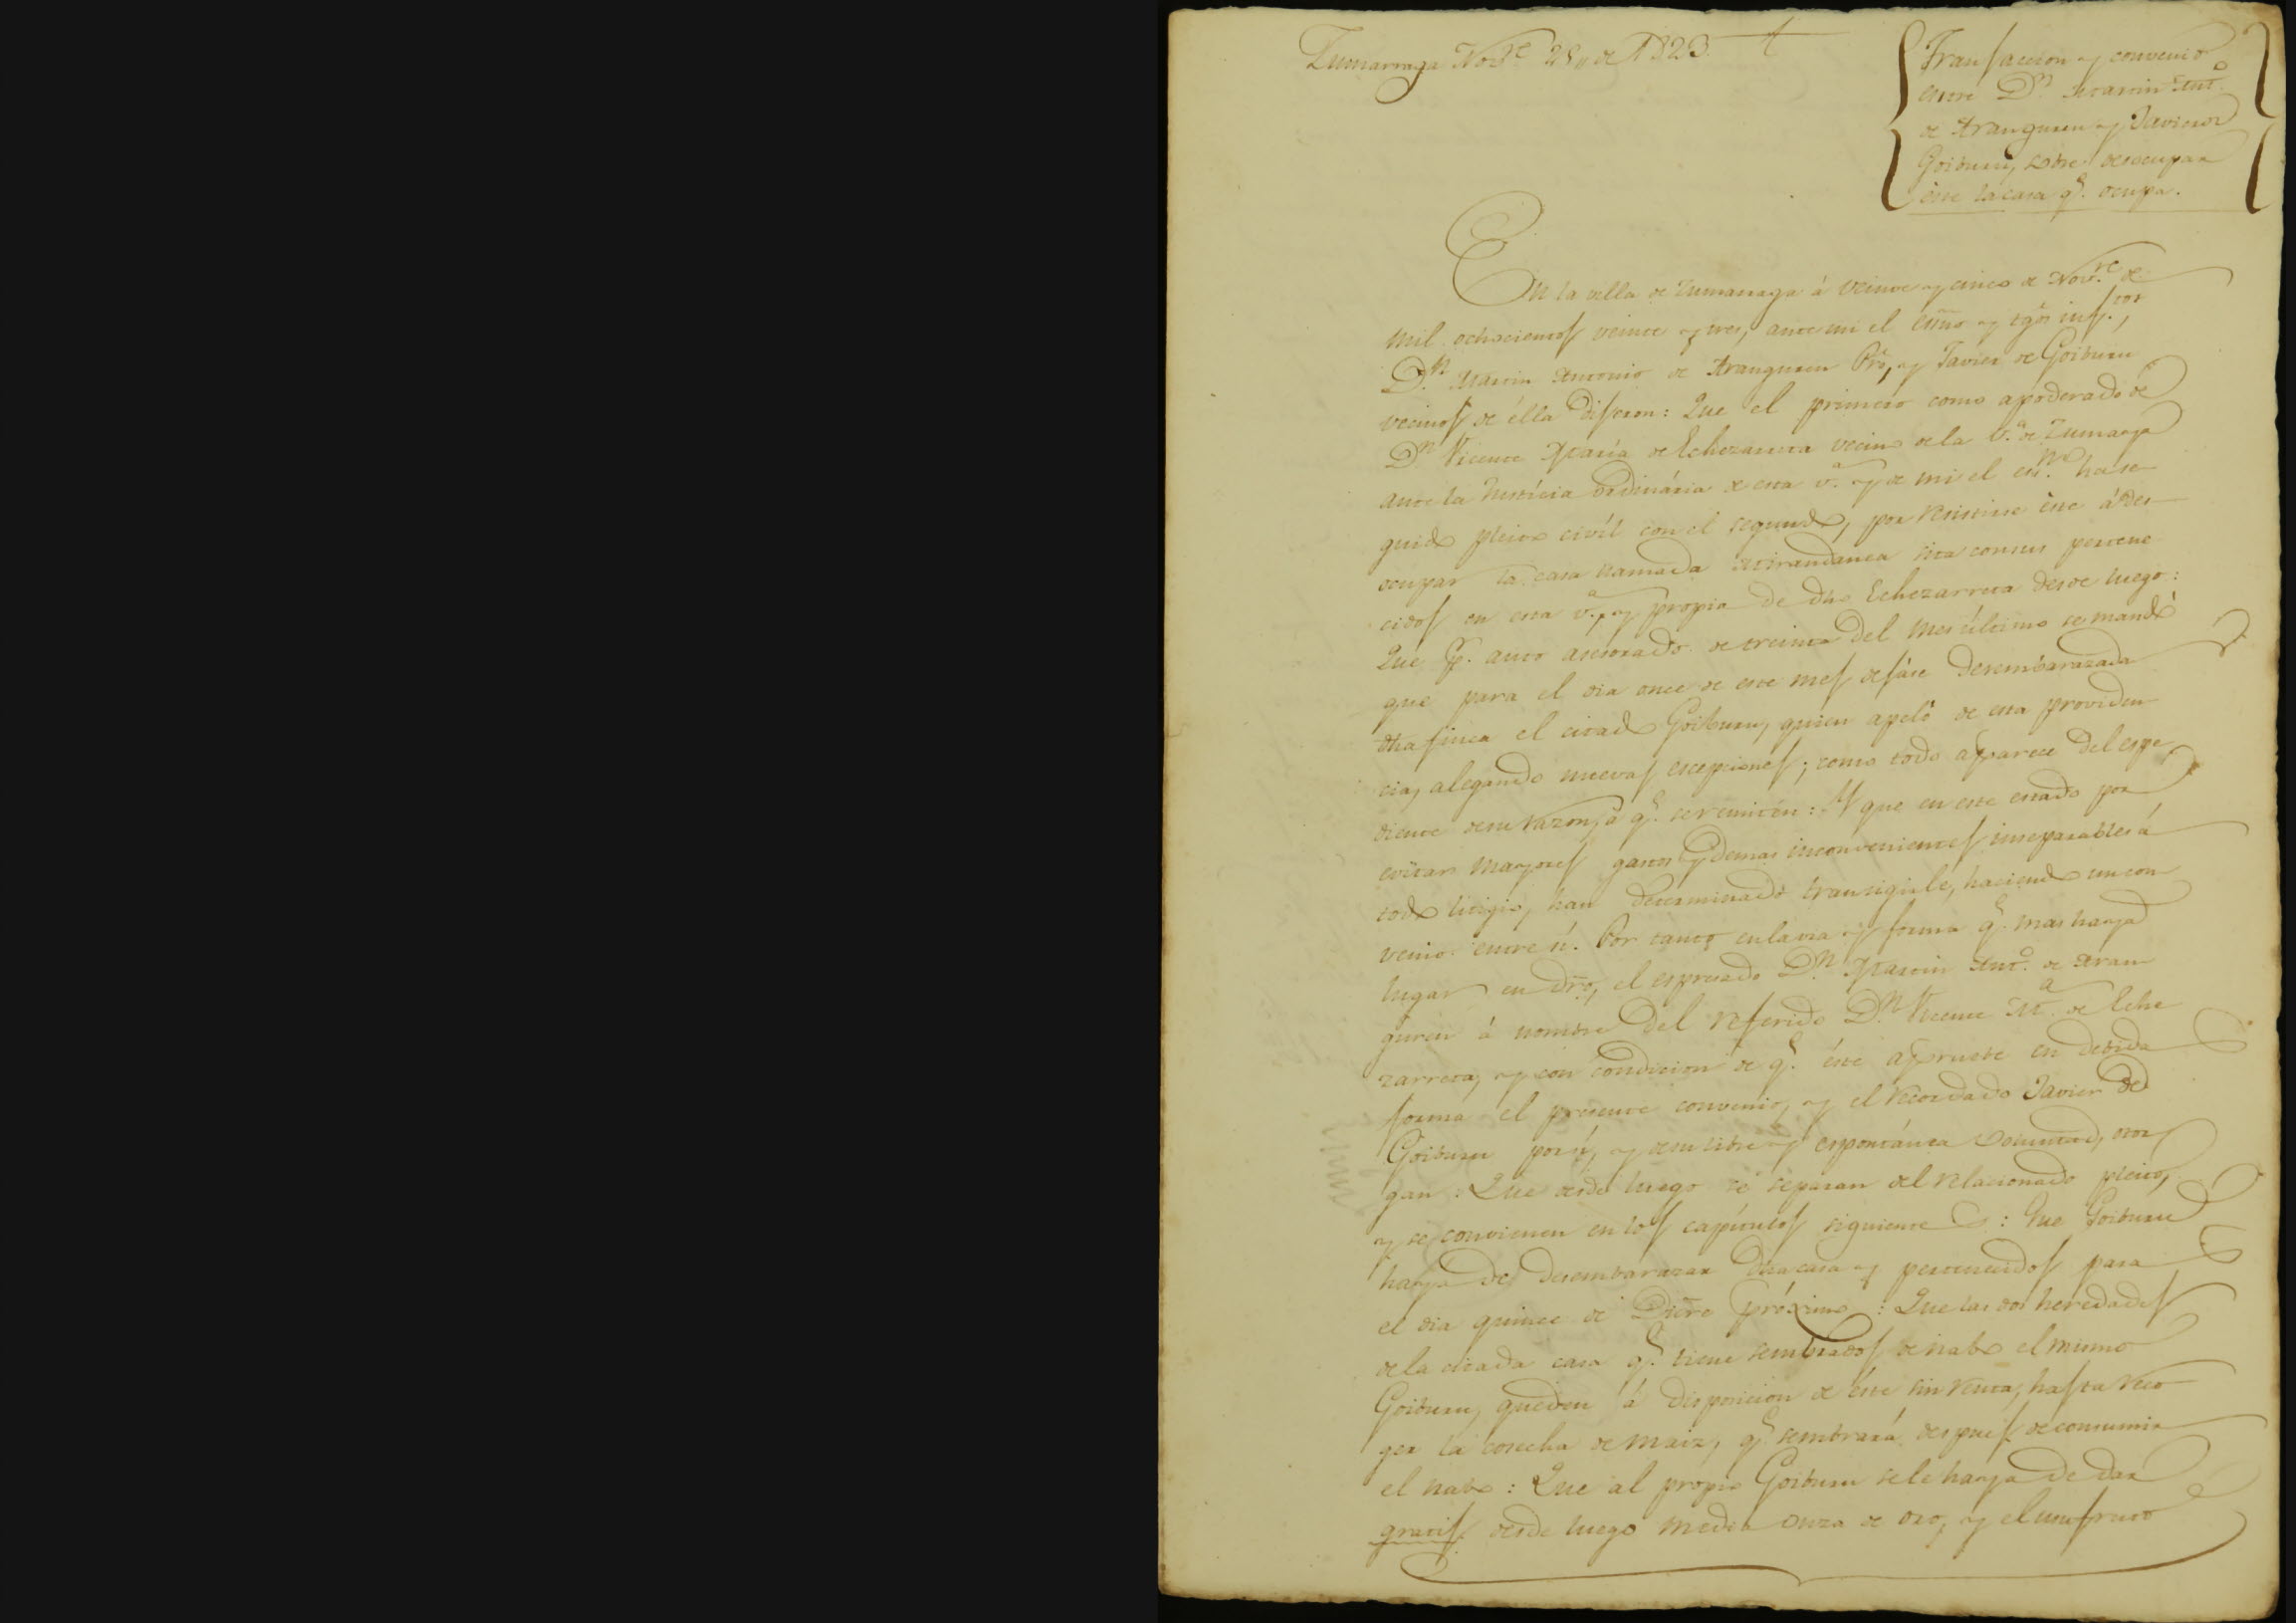 Zumarraga Nov.e 25,, de 1823.
Transaccion y convenio
entre D.n Martin Ant.o
de Aranguren y Javier de
Goiburu, sobre desocupar
éste la casa q.e ocupa.
En la villa de Zumarraga á veinte y cinco de Nov.re de
mil ochocientos veinte y tres, ante mi el esño y tgos infros,
D.n Martin Antonio de Aranguren Pro, y Javier de Goiburu
vecinos de élla dijeron: Que el primero como apoderado de
D.n Vicente Maria de Echezarreta vecino de la v.a de Zumaya
ante la Justicia ordinária de esta v.a y de mi el esn.no ha se
guido pleito civíl con el segundo, por resistirse éste á des
ocupar la casa llamada Mirandanea sita con sus pertene
cidos en esta v.a, y própia de dho Echezarreta desde luego:
Que p.r auto asesorado de treinta del mes último se mandó
que para el dia once de este mes dejáse desembarazada
dha finca el citado Goiburu, quien apeló de esta providen
cia, alegando nuevas escepciones; como todo aparece del espe
diente de su razon, á q.e se remiten: Y que en este estado por
evitar mayores gastos y demas inconvenientes inseparables á
todo litigio, han determinado transigirle, haciendo un con
venio entre sí. Por tanto en la via y forma q.e mas haya
lugar en dro, el espresado D.n Martin Ant.o de Aran
guren á nombre del referido D.n Vicente M.a de Eche
zarreta, y con condicion de q.e éste apruebe en debida
forma el presente convenio, y el recordado Javier de
Goiburu por sí, y de su libre y espontánea voluntad, otor
gan: Que desde luego se separan del relacionado pleito,
y se convienen en los capítulos siguientes: Que Goiburu
haya de desembarazar dha casa y pertenecidos para
el dia quince de Dicre próximo: Que las dos heredades
de la citada casa q.e tiene sembrados de nabo el mismo
Goiburu, queden á disposicion de éste sin renta, hasta reco
ger la cosecha de maiz, q.e sembrará despues de consumir
el nabo: Que al propio Goiburu se le haya de dar
gratis desde luego media onza de oro, y el usufruto